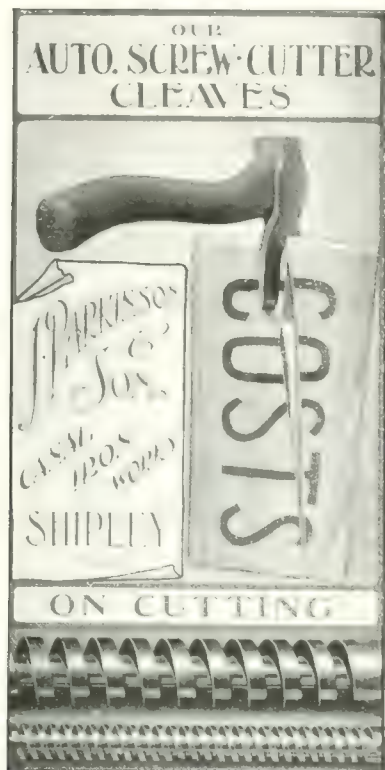 OUR
AUTO. SCREW-CUTTER
CLEAVES
J. PARKINSON
&
SON,
CANAL
IRON
WORKS
SHIPLEY
COSTS
ON CUTTING